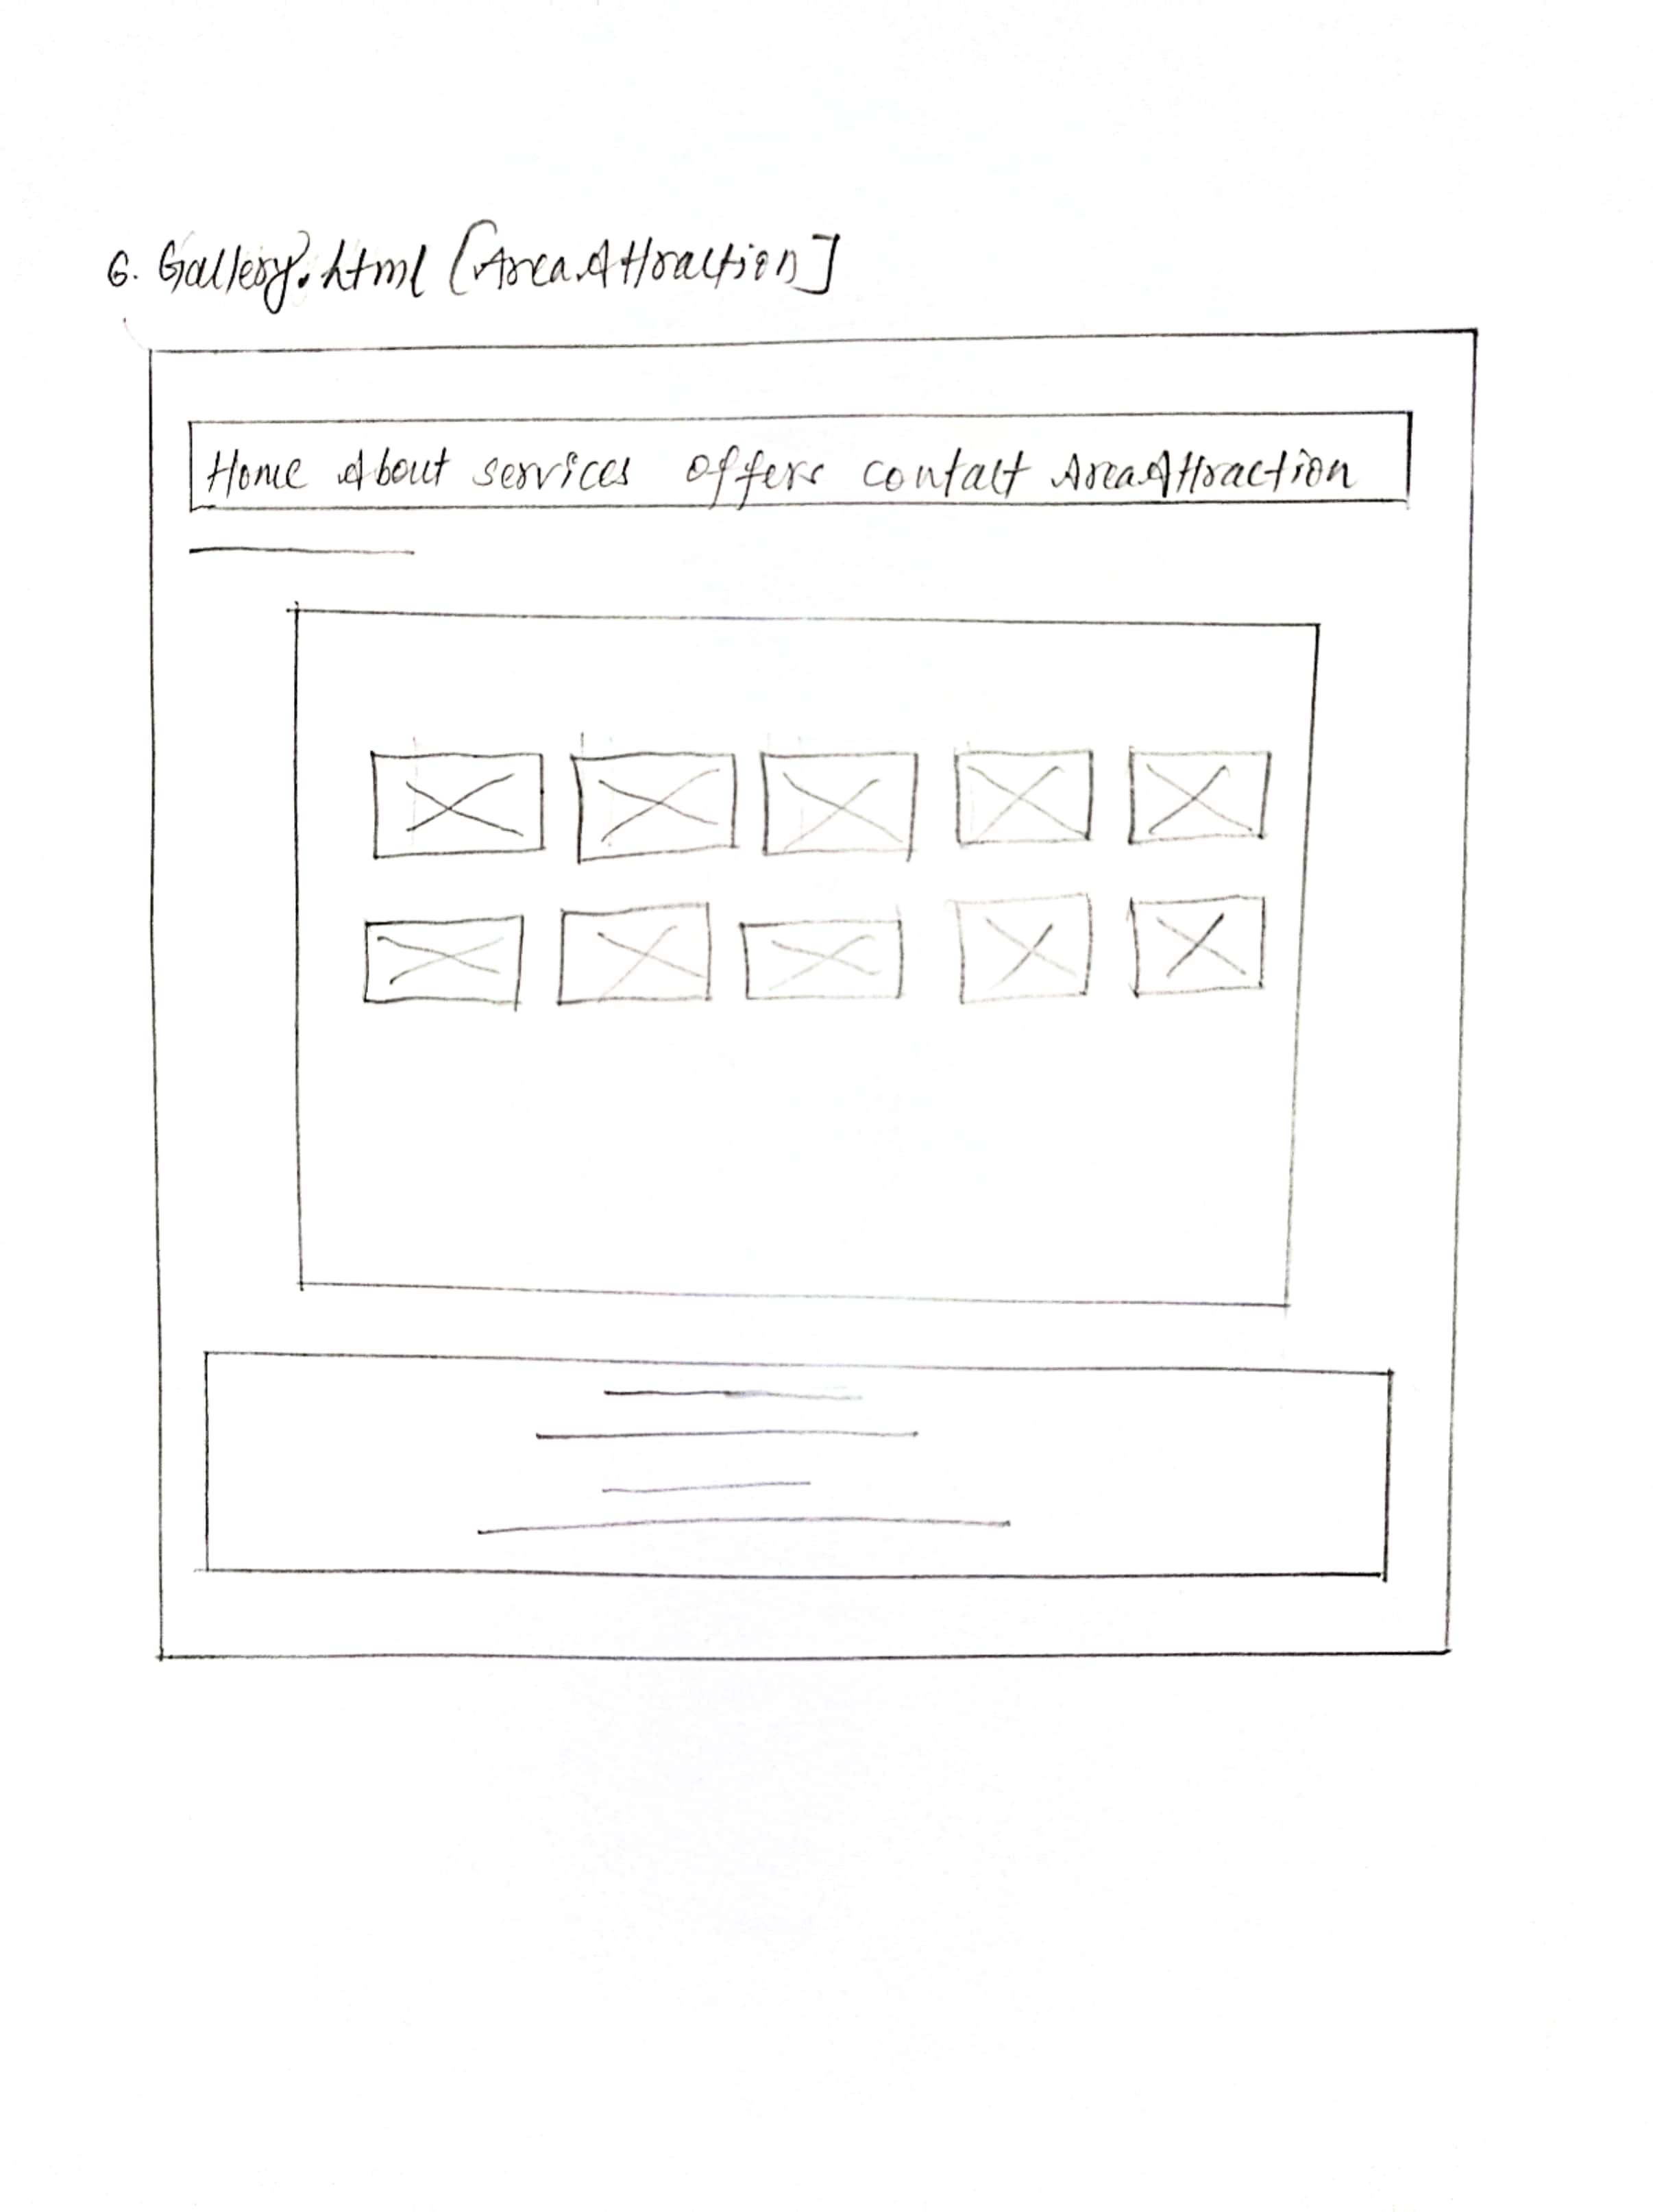 6. Gallery.html [Area Attraction]
Home About services offers contact Area Attraction